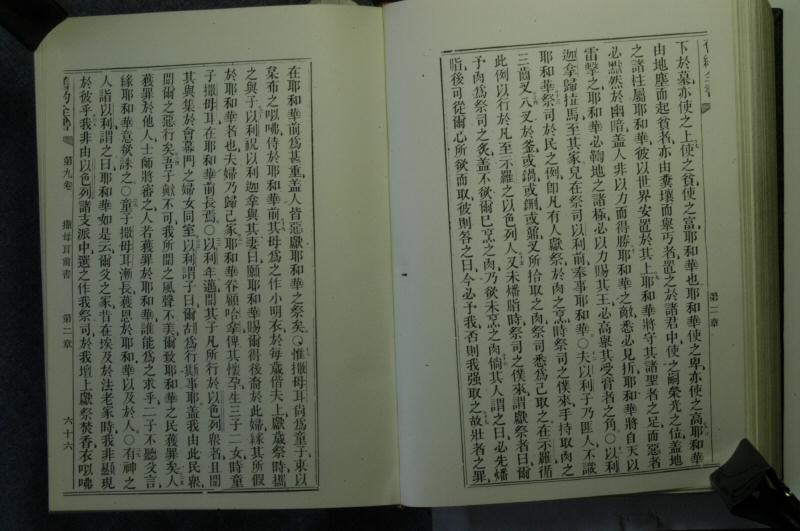 舊約全書
第二章
下於墓亦使之上使之貧使之富耶和華也耶和華使之卑亦使之高耶和華
由地塵而起貧者亦由糞壤而舉丐者置之於諸君中使之嗣榮光之位蓋地
之諸柱屬耶和華彼以世界安置於其上耶和華將守其諸聖者之足而惡者
必默然於幽暗蓋人非以力而得勝耶和華之敵悉必見折耶和華將自天以
雷擊之耶和華必鞫地之諸極必以力賜其王必高舉其受膏者之角〇以利
迦拿歸拉馬至其家兒在祭司以利前奉事耶和華〇夫以利子乃匪人不識
耶和華祭司於民之例卽凡有人獻祭於肉之烹時祭司之僕來手持取肉之
三齒叉入叉於釜或鍋或鼎叉所拾取之肉祭司悉爲己取之在示羅循
此例以行於凡至示羅之以色列人又未燔脂時祭司之僕來謂獻祭者曰爾
予肉爲祭司之炙蓋不欲爾已烹之肉乃欲未烹之肉倘其人謂之曰必先燔
脂後可從爾心所欲而取彼則答之曰今必予我否則我强取之故壯者之罪
在耶和華前爲甚重蓋人皆惡獻耶和華之祭矣〇惟撒母耳尙爲童子束以
枲布之以咈侍於耶和華前其母爲之作小明衣於每歲偕夫上獻歲祭時攜
之與子以利祝以利迦拿與其妻曰願耶和華賜爾得後裔於此婦緣其所假
於耶和華者也夫婦乃歸己家耶和華眷顧哈拿俾其懷孕生三子二女時童
子撒母耳在耶和華前長焉〇以利年邁聞其子凡所行於以色列衆者且聞
其與集於會幕門之婦女同室以利謂子曰爾胡爲行斯事耶蓋我由此民衆
聞爾之惡行矣吾子歟不可我所聞之風聲不美爾致耶和華之民獲罪矣人
獲罪於他人士師將審之人若獲罪於耶和華誰能爲之求乎二子不聽父言
緣耶和華意欲誅之〇童子撒母耳漸長獲恩於耶和華以及於人〇有神之
人詣以利謂之曰耶和華如是云爾父之家昔在埃及於法老家時我非顯現
於彼乎我非由以色列諸支派中選之作我祭司於我壇上獻祭焚香衣以咈
舊約全書
第九卷 撒母耳前書 第二章 六十六